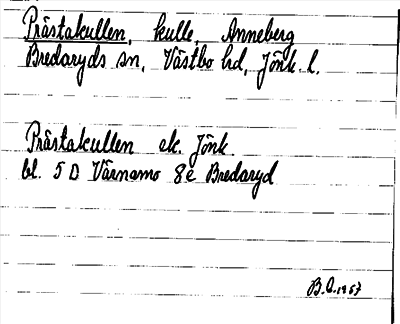 Prästakullen, kulle, Anneberg
Bredaryds sn, Västbo hd, Jönk. l.
Prästakullen ek. Jönk.
bl. 5 D Värnamo 8 e Bredaryd
B.O. 1967